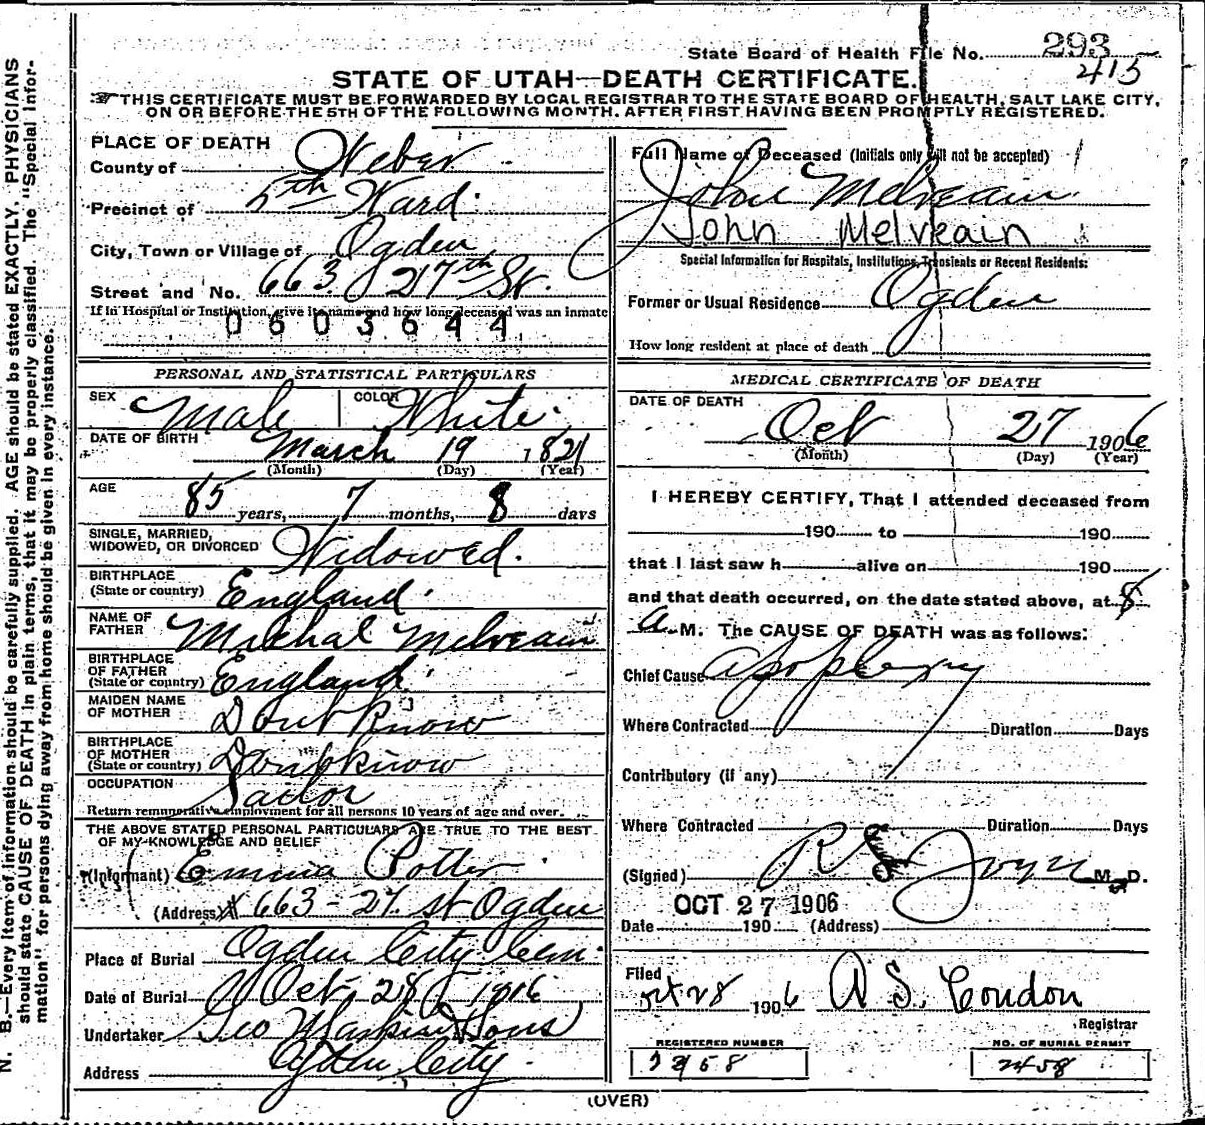 State Board of Health File No. 293
415
STATE OF UTAH—DEATH CERTIFICATE.
THIS CERTIFICATE MUST BE FORWARDED BY LOCAL REGISTRAR TO THE STATE BOARD OF HEALTH, SALT LAKE CITY,
ON OR BEFORE THE 5TH OF THE FOLLOWING MONTH. AFTER FIRST HAVING BEEN PROMPTLY REGISTERED.
N. B.—Every item of information should be carefully supplied. AGE should be stated EXACTLY. PHYSICIANS
should state CAUSE OF DEATH in plain terms, that it may be properly classified. The "Special Infor-
mation" for persons dying away from home should be given in every instance.
PLACE OF DEATH
County of Weber
Precinct of 5th Ward
City, Town or Village of Ogden
Street and No. 663 27th St.
If in Hospital or Institution, give its name and how long deceased was an inmate
0603644
PERSONAL AND STATISTICAL PARTICULARS
SEX Male COLOR White
DATE OF BIRTH March 19 1821
(Month) (Day) (Year)
AGE 85 years, 7 months, 8 days
SINGLE, MARRIED,
WIDOWED, OR DIVORCED Widowed.
BIRTHPLACE
(State or country) England
NAME OF
FATHER Michal Melveain
BIRTHPLACE
OF FATHER
(State or country) England
MAIDEN NAME
OF MOTHER Dont know
BIRTHPLACE
OF MOTHER
(State or country) Dont know
OCCUPATION Sailor
Return remunerative employment for all persons 10 years of age and over.
THE ABOVE STATED PERSONAL PARTICULARS ARE TRUE TO THE BEST
OF MY KNOWLEDGE AND BELIEF
(Informant) Emma Potter
(Address) 663-27. st Ogden
Place of Burial Ogden City Cem.
Date of Burial Oct. 28 1906
Undertaker Geo Sons
Address Ogden City
Full Name of Deceased (Initials only will not be accepted)
John Melveain
John Melveain
Special Information for Hospitals, Institutions, Transients or Recent Residents:
Former or Usual Residence Ogden
How long resident at place of death
MEDICAL CERTIFICATE OF DEATH
DATE OF DEATH
Oct 27 1906
(Month) (Day) (Year)
I HEREBY CERTIFY, That I attended deceased from
190 to 190
that I last saw h alive on 190
and that death occurred, on the date stated above, at 8
A. M. The CAUSE OF DEATH was as follows:
Chief Cause Apoplexy
Where Contracted Duration Days
Contributory (if any)
Where Contracted Duration Days
(Signed) R S Joyce M. D.
OCT 27 1906
Date 190 (Address)
Filed
Oct 28 1906 A. S. Condon
Registrar
REGISTERED NUMBER NO. OF BURIAL PERMIT
2458
(OVER)